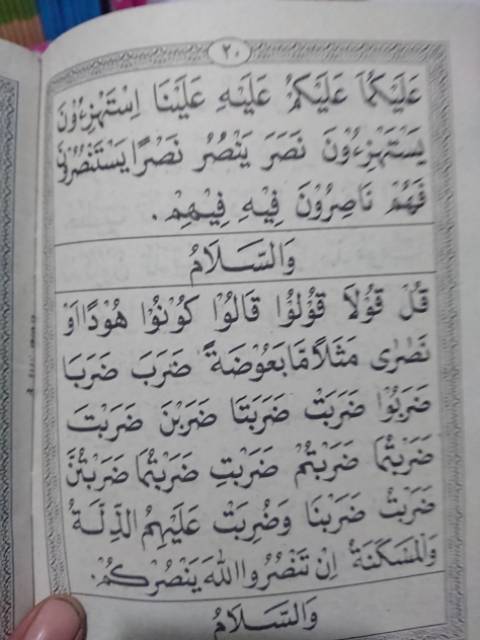 ٢٠
عَلَيْكُمَا عَلَيْكُمْ عَلَيْهِ عَلَيْنَا اِسْتَهْزِءُوْنَ
يَسْتَهْزِءُوْنَ نَصَرَ يَنْصُرُ نَصْرًا يَسْتَنْصُرُوْنَ
فَهُمْ نَاصِرُوْنَ فِيْهِ فِيْهِمْ.
وَالسَّلَامُ
قُلْ قُوْلَا قُوْلُوْا قَالُوْا كُوْنُوْا هُوْدًا اَوْ
نَصٰرٰى مَثَلًا مَّا بَعُوْضَةً ضَرَبَ ضَرَبَا
ضَرَبُوْا ضَرَبَتْ ضَرَبَتَا ضَرَبْنَ ضَرَبْتَ
ضَرَبْتُمَا ضَرَبْتُمْ ضَرَبْتِ ضَرَبْتُمَا ضَرَبْتُنَّ
ضَرَبْتُ ضَرَبْنَا وَضُرِبَتْ عَلَيْهِمُ الذِّلَةُ
وَالْمَسْكَنَةُ اِنْ تَنْصُرُوا اللهَ يَنْصُرْكُمْ.
وَالسَّلَامُ